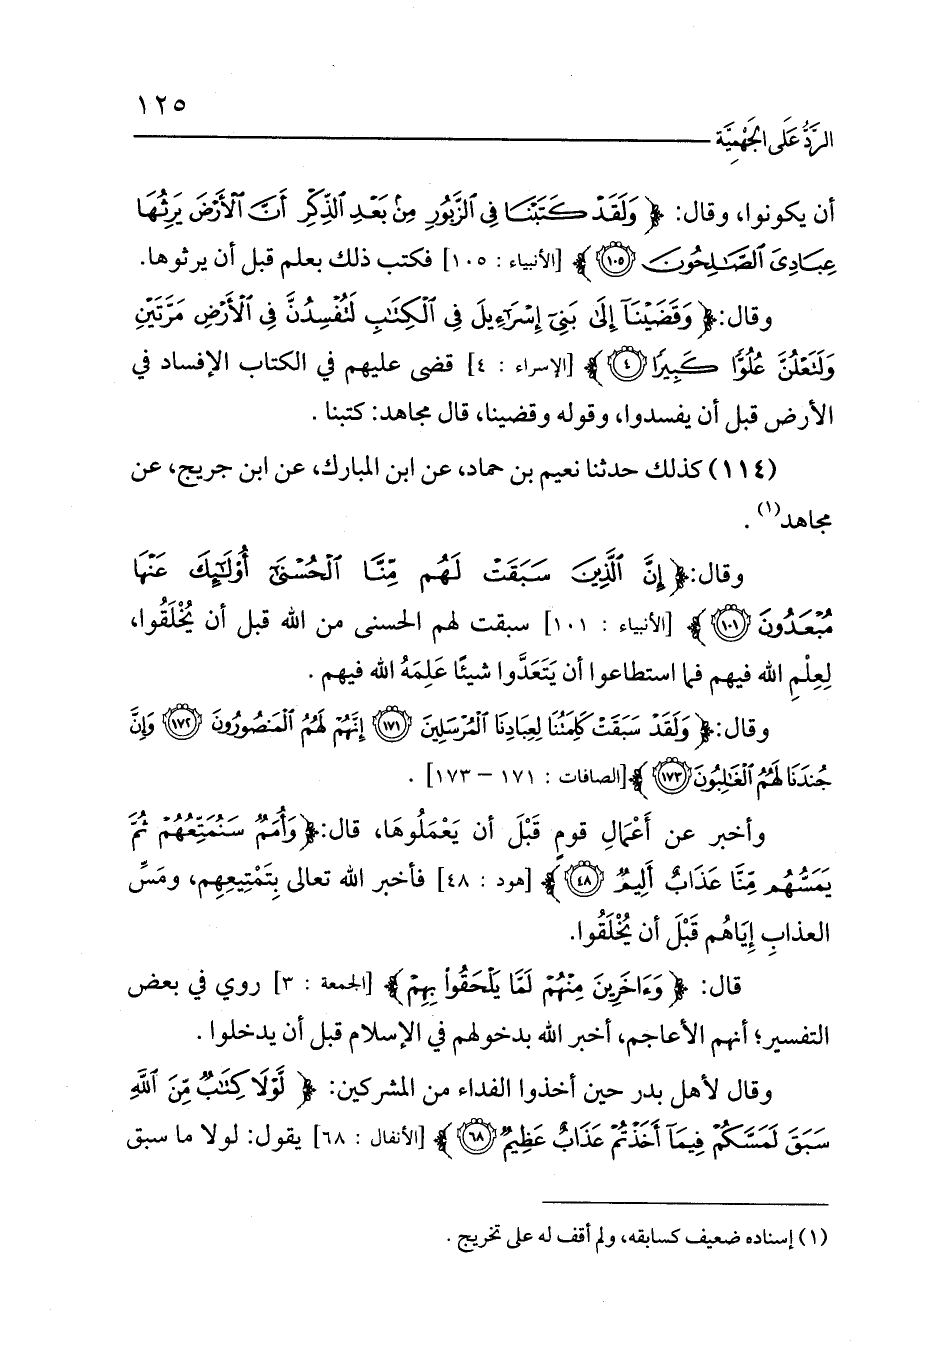 ١٢٥
الرَّدُّ عَلَى الجَهْمِيَّة
أن يكونوا، وقال: ﴿ وَلَقَدْ كَتَبْنَا فِي الزَّبُورِ مِنْ بَعْدِ الذِّكْرِ أَنَّ الْأَرْضَ يَرِثُهَا
عِبَادِيَ الصَّالِحُونَ ١٠٥ ﴾ [الأنبياء : ١٠٥] فكتب ذلك بعلم قبل أن يرثوها.
وقال: ﴿ وَقَضَيْنَآ إِلَىٰ بَنِيٓ إِسْرَآءِيلَ فِي الْكِتَٰبِ لَتُفْسِدُنَّ فِي الْأَرْضِ مَرَّتَيْنِ
وَلَتَعْلُنَّ عُلُوًّا كَبِيرًا ٤ ﴾ [الإسراء : ٤] قضى عليهم في الكتاب الإفساد في
الأرض قبل أن يفسدوا، وقوله وقضينا، قال مجاهد: كتبنا .
(١١٤) كذلك حدثنا نعيم بن حماد، عن ابن المبارك، عن ابن جريج، عن
مجاهد(١) .
وقال: ﴿ إِنَّ الَّذِينَ سَبَقَتْ لَهُم مِّنَّا الْحُسْنَىٰٓ أُوْلَٰٓئِكَ عَنْهَا
مُبْعَدُونَ ١٠١ ﴾ [الأنبياء : ١٠١] سبقت لهم الحسنى من الله قبل أن يُخْلَقُوا،
لِعِلْمِ الله فيهم فما استطاعوا أن يَتَعَدَّوا شيئًا عَلِمَهُ الله فيهم .
وقال: ﴿ وَلَقَدْ سَبَقَتْ كَلِمَتُنَا لِعِبَادِنَا الْمُرْسَلِينَ ١٧١ إِنَّهُمْ لَهُمُ الْمَنصُورُونَ ١٧٢ وَإِنَّ
جُندَنَا لَهُمُ الْغَالِبُونَ ١٧٣ ﴾ [الصافات : ١٧١ – ١٧٣] .
وأخبر عن أَعْمَالِ قومٍ قَبْلَ أن يَعْمَلُوهَا، قال: ﴿ وَأُمَمٌ سَنُمَتِّعُهُمْ ثُمَّ
يَمَسُّهُم مِّنَّا عَذَابٌ أَلِيمٌ ٤٨ ﴾ [هود : ٤٨] فأخبر الله تعالى بِتَمْتِيعِهِم، ومَسِّ
العذابِ إِيَاهُم قَبْلَ أن يُخْلَقُوا.
قال: ﴿ وَءَاخَرِينَ مِنْهُمْ لَمَّا يَلْحَقُواْ بِهِمْ ﴾ [الجمعة : ٣] روي في بعض
التفسير؛ أنهم الأعاجم، أخبر الله بدخولهم في الإسلام قبل أن يدخلوا .
وقال لأهل بدر حين أخذوا الفداء من المشركين: ﴿ لَّوْلَا كِتَٰبٌ مِّنَ اللَّهِ
سَبَقَ لَمَسَّكُمْ فِيمَآ أَخَذْتُمْ عَذَابٌ عَظِيمٌ ٦٨ ﴾ [الأنفال : ٦٨] يقول: لولا ما سبق
(١) إسناده ضعيف كسابقه، ولم أقف له على تخريج .